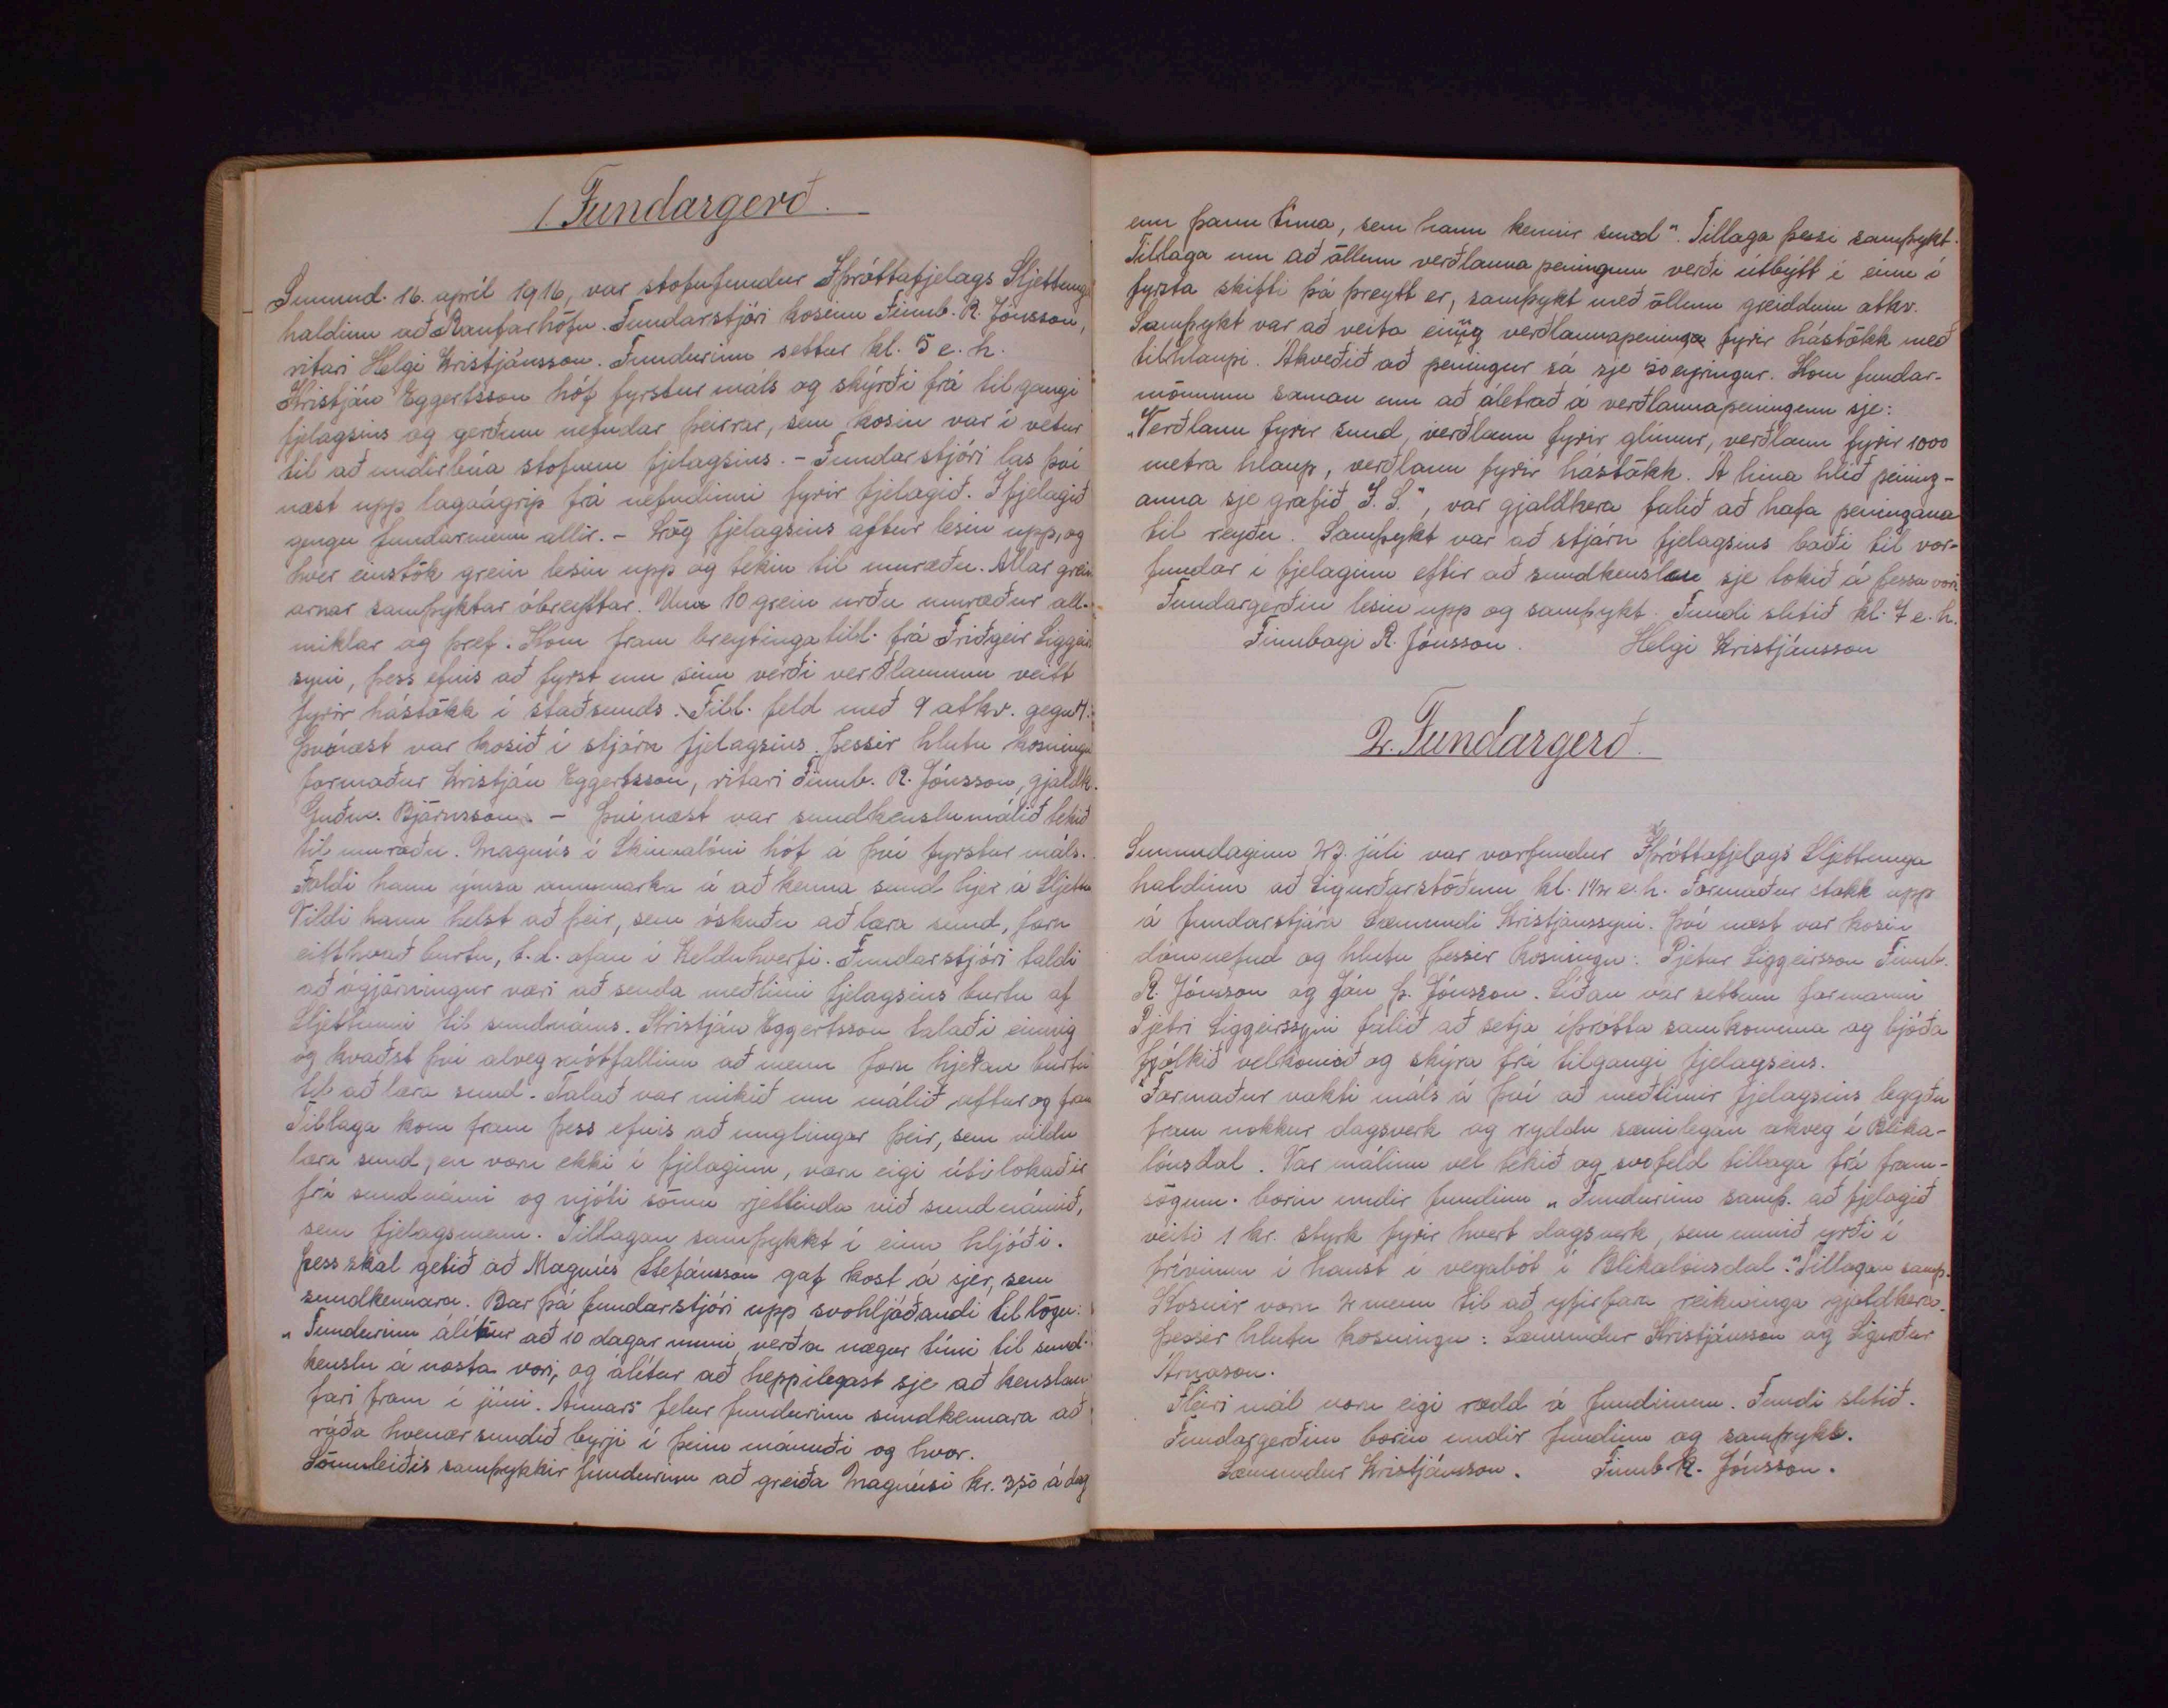 1. Fundargerð.
Sunnud. 16. apríl 1916, var stofnfundur Íþróttafjelags Sljettunga
haldinn að Raufarhöfn. Fundarstjóri kosinn Finnb. R. Jónsson,
ritari Helgi Kristjánsson. Fundurinn settur kl. 5 e. h.
Kristján Eggertsson hóf fyrstur máls og skýrði frá tilgangi
fjelagsins og gerðum nefndar þeirrar, sem kosin var í vetur
til að undirbúa stofnun fjelagsins. - Fundarstjóri las því
næst upp lagaágrip frá nefndinni fyrir fjelagið. Í fjelagið
gengu fundarmenn allir. - Lög fjelagsins aftur lesin upp, og
hver einstök grein lesin upp og tekin til umræðu. Allar grein
arnar samþyktar óbreyttar. Um 10 grein urðu umræður all-
miklar og þref. Kom fram breytingatill. frá Friðgeir Siggeirs
syni, þess efnis að fyrst um sinn verði verðlaunum veitt
fyrir hástökk í stað sunds. Till. feld með 9 atkv. gegn 4.
Þvínæst var kosið í stjórn fjelagsins. Þessir hlutu kosningu
formaður Kristján Eggertsson, ritari Finnb. R. Jónsson, gjaldk.
Guðm. Björnsson. - Því næst var sundkenslumálið tekið
til umræðu. Magnús í Skinnalóni hóf á því fyrstur máls.
Taldi hann ýmsa annmarka á að kenna sund hjer á Sljettu
Vildi hann helst að þeir, sem óskuðu að læra sund, færu
eitthvað burtu, t. d. ofan í Kelduhverfi. Fundarstjóri taldi
að ógjörningur væri að senda meðlimi fjelagsins burtu af
Sljettunni til sundnáms. Kristján Eggertsson talaði einnig
og kvaðst því alveg mótfallinn að menn færu hjeðan burtu
til að læra sund. Talað var mikið um málið aftur og fram
Tillaga kom fram þess efnis að unglingar þeir, sem vildu
læra sund, en væru ekki í fjelaginu, væru eigi útilokaðir
frá sundnámi og njóti sömu rjettinda við sundnámið,
sem fjelagsmenn. Tillagan samþykkt í einu hljóði.
Þess skal getið að Magnús Stefánsson gaf kost á sjer, sem
sundkennara. Bar þá fundarstjóri upp svohljóðandi tillögu:
„Fundurinn álítur að 10 dagar muni verða nægur tími til sund-
kenslu á næsta vori, og álítur að heppilegast sje að kenslan
fari fram í júní. Annars felur fundurinn sundkennara að
ráða hvenær sundið byrji í þeim mánuði og hvar.
Sömuleiðis samþykkir fundurinn að greiða Magnúsi kr. 3,50 á dag
um þann tíma, sem hann kennir sund". Tillaga þessi samþykt.
Tillaga um að öllum verðlaunapeningum verði útbýtt í einu í
fyrsta skifti þá þreytt er, samþykt með öllum greiddum atkv.
Samþykt var að veita einnig verðlaunapeninga fyrir hástökk með
tilhlaupi. Ákveðið að peningur sá sje 50 eyringur. Kom fundar-
mönnum saman um að áletrað á verðlaunapeningum sje:
„Verðlaun fyrir sund, verðlaun fyrir glímur, verðlaun fyrir 1000
metra hlaup, verðlaun fyrir hástökk. Á hina hlið pening-
anna sje grafið Í. S.", var gjaldkera falið að hafa peningana
til reyðu. Samþykt var að stjórn fjelagsins boði til vor-
fundar í fjelaginu eftir að sundkenslan sje lokið á þessu vori
Fundargerðin lesin upp og samþykt. Fundi slitið kl. 7 e. h.
Finnbogi R. Jónsson. Helgi Kristjánsson
2. Fundargerð.
Sunnudaginn 23. júli var vorfundur Íþróttafjelags Sljettunga
haldinn að Sigurðarstöðum kl. 1 1/2 e. h. Formaður stakk upp
á fundarstjóra Sæmundi Kristjánssyni. Því næst var kosin
dómnefnd og hlutu þessir kosningu: Pjetur Siggeirsson Finnb.
R. Jónsson og Jón Þ. Jónsson. Síðan var settum formanni
Pjetri Siggeirssyni falið að setja íþrótta samkomuna og bjóða
fólkið velkomið og skýra frá tilgangi fjelagsins.
Formaður vakti máls á því að meðlimir fjelagsins leggðu
fram nokkur dagsverk og ryddu sæmilegan akveg í Blika-
lónsdal. Var málinu vel tekið og svofeld tillaga frá fram-
sögum. borin undir fundinn „Fundurinn samþ. að fjelagið
veiti 1 kr. styrk fyrir hvert dagsverk, sem unnið yrði í
frívinnu í haust í vegabót í Blikalónsdal." Tillagan samþ.
Kosnir voru 2 menn til að yfirfara reikninga gjaldkera.
Þessir hlutu kosningu: Sæmundur Kristjánsson og Sigurður
Árnason.
Fleiri mál voru eigi rædd á fundinum. Fundi slitið.
Fundargerðin borin undir fundinn og samþykt.
Sæmundur Kristjánsson. Finnb. R. Jónsson.